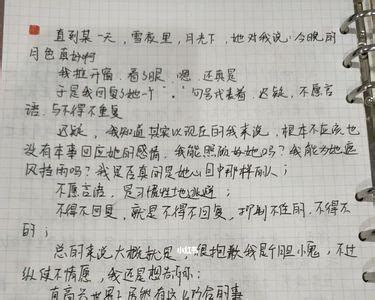 直到某一天，雪夜里，月光下，她对我说：今晚的
月色真好啊
我推开窗，看了眼，嗯，还真是
于是我回复了她一个“。”句号代表着，迟疑，不愿言
语，与不得不重复
迟疑，我知道其实以现在的我来说，根本不应该也
没有本事回应她的感情，我能照顾好她吗？我能为她遮
风挡雨吗？我是否真的是她心目中那样的人；
不愿言语，是习惯性地逃避；
不得不回复，就是不得不回复，抑制不住的，不得不
的；
总的来说大概就是，很抱歉我是个胆小鬼，不过
纵使不情愿，我还是想告诉你：
有高兴世界上居然有这么巧合的事
小红书